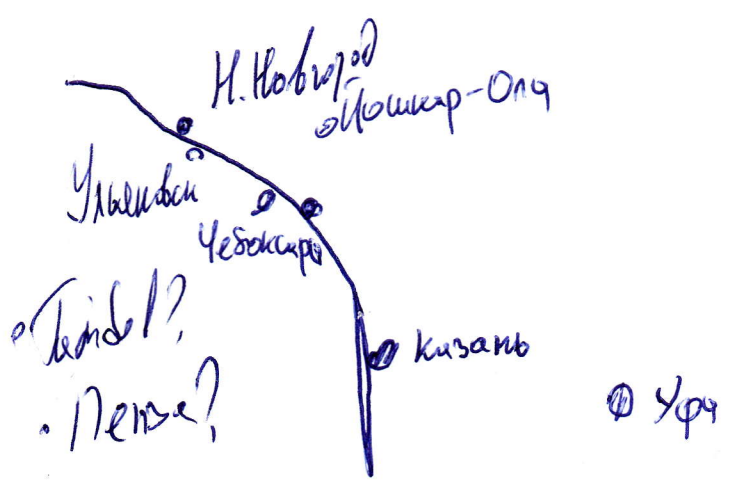 Н.Новгород
Йошкар-Ола
Ульяновск
Чебоксары
Тамбов?
Казань
Пенза?
Уфа